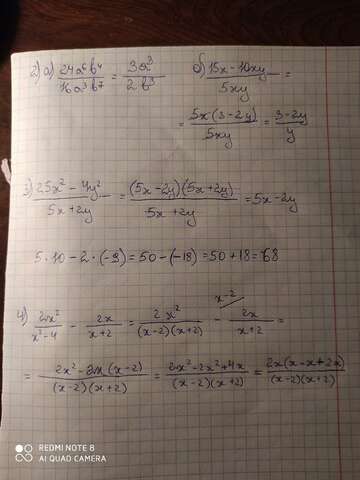 2) а) 24a⁶b⁴/16a³b⁷ = 3a³/2b³   б) 15x - 10xy/5xy =
= 5x(3-2y)/5xy = 3-2y/y
3) 25x² - 4y²/5x + 2y = (5x-2y)(5x+2y)/5x + 2y = 5x - 2y
5·10 - 2·(-9) = 50 - (-18) = 50 + 18 = 68
4) 2x²/x²-4 - 2x/x+2 = 2x²/(x-2)(x+2) - x-2 2x/x+2 =
= 2x² - 2x(x-2)/(x-2)(x+2) = 2x² - 2x² + 4x/(x-2)(x+2) = 2x(x-x+2x)/(x-2)(x+2)
REDMI NOTE 8
AI QUAD CAMERA